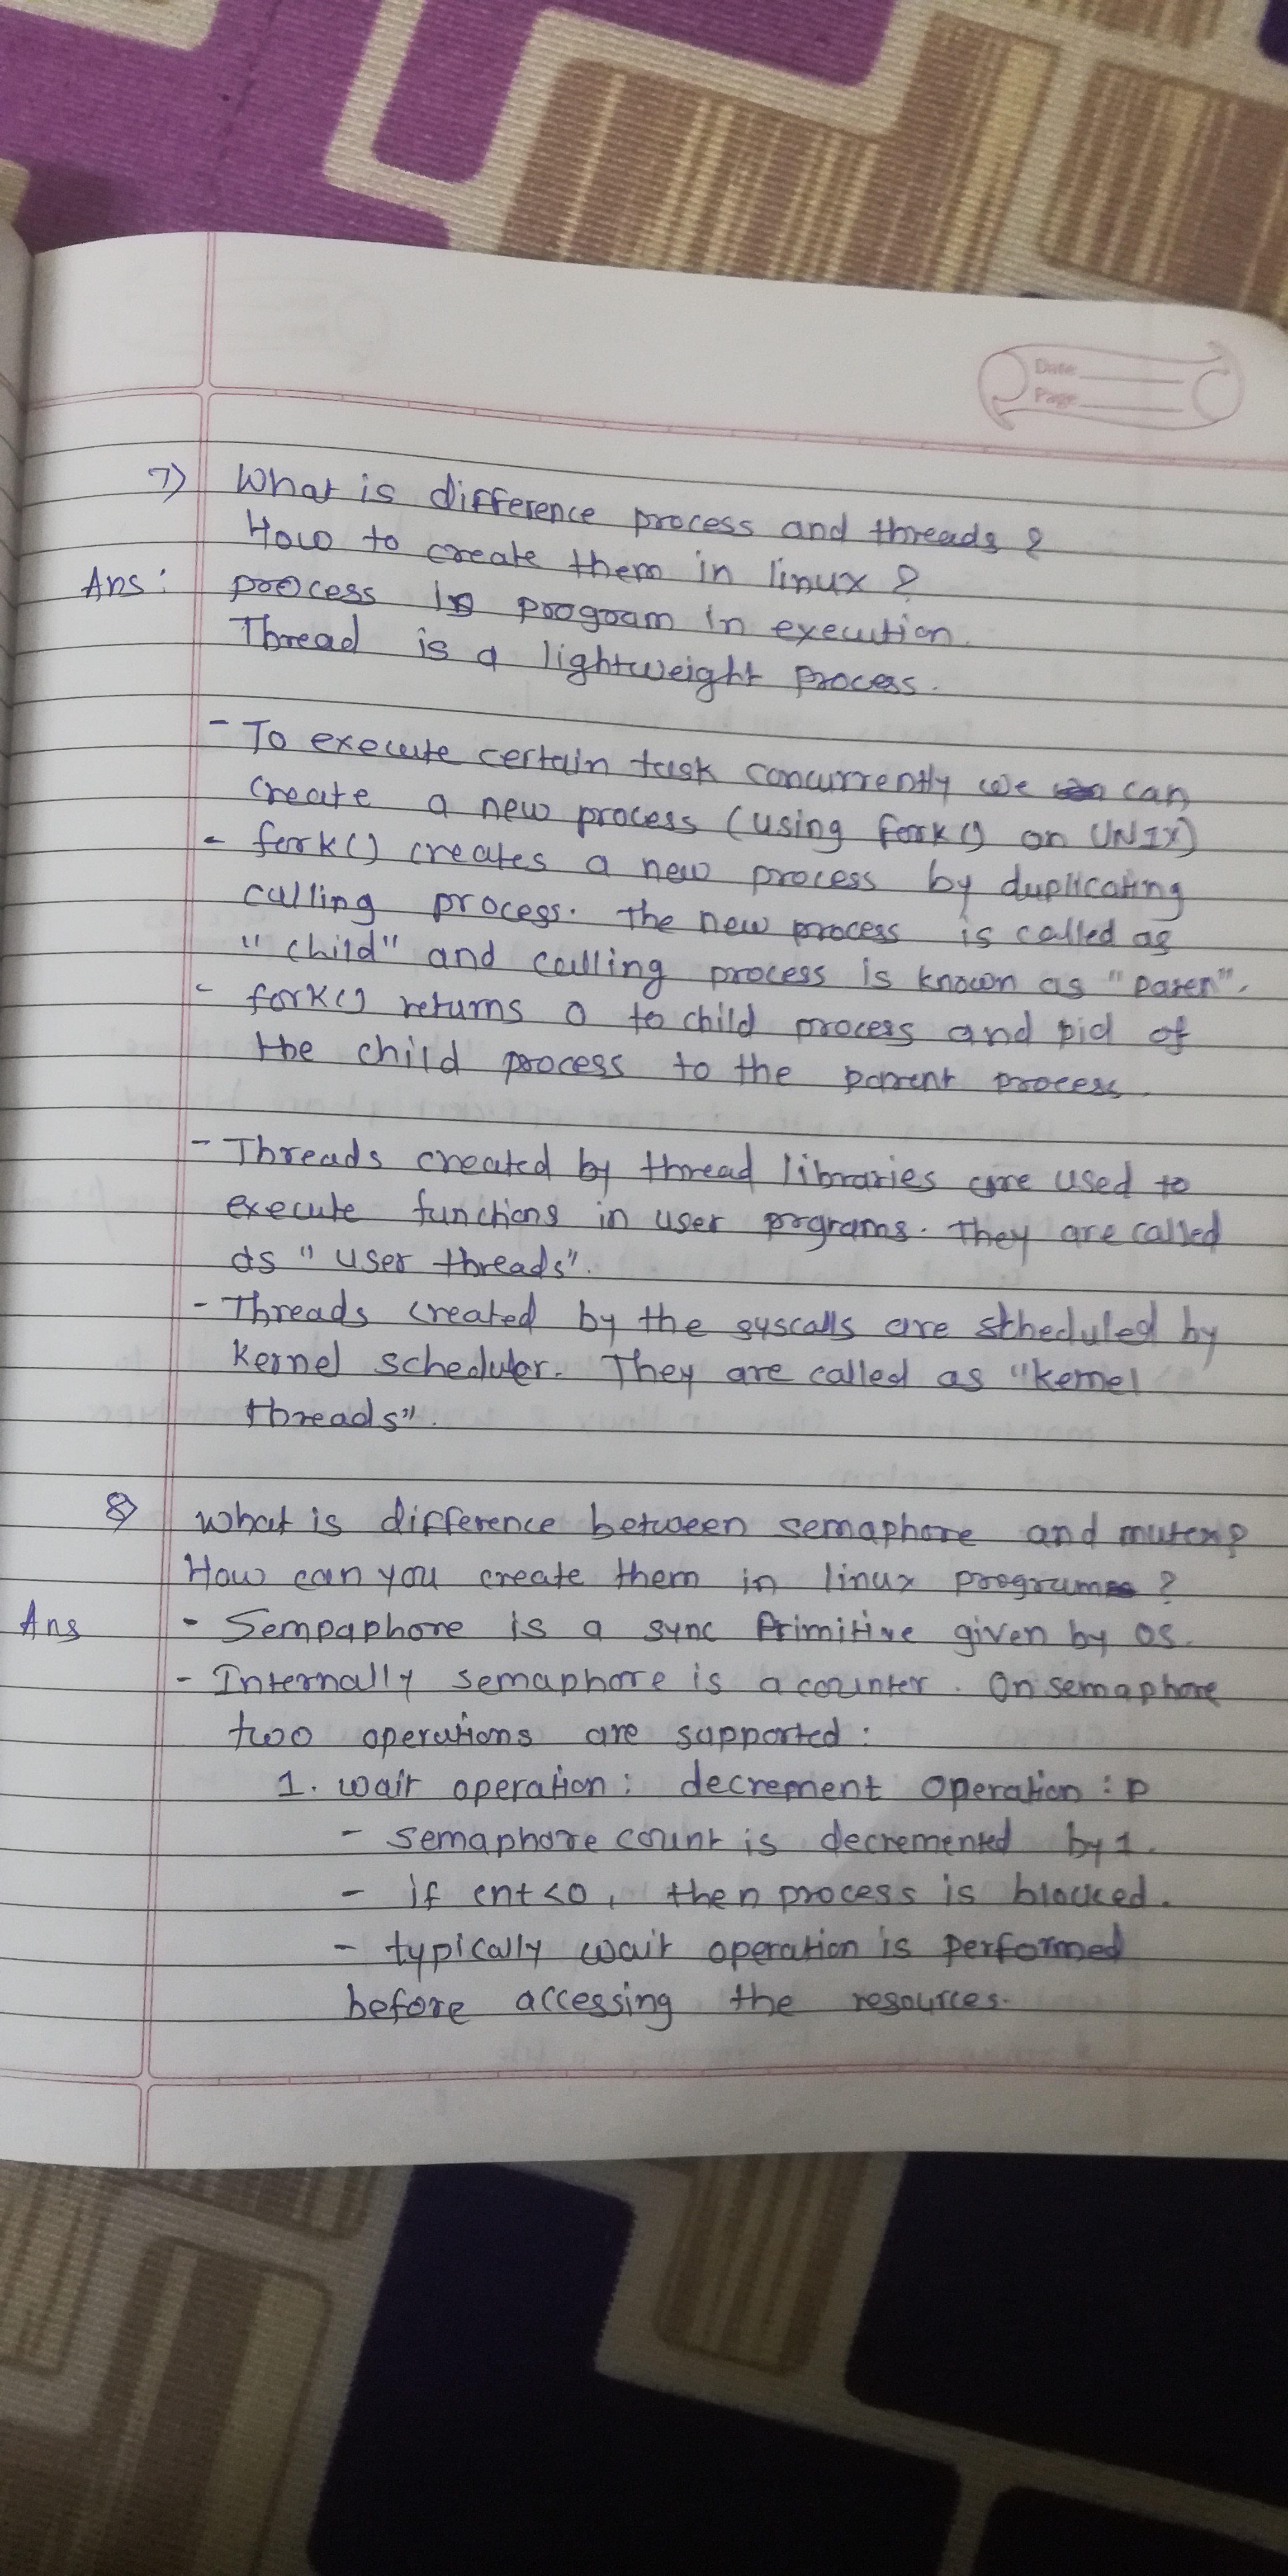 Date
Page
7) What is difference process and threads ?
How to create them in linux ?
Ans: process is program in execution.
Thread is a lightweight process.
- To execute certain task concurrently we can
create a new process (using fork() on UNIX)
- fork() creates a new process by duplicating
calling process. the new process is called as
"child" and calling process is known as "paren".
- fork() returns 0 to child process and pid of
the child process to the parent process.
- Threads created by thread libraries are used to
execute functions in user prgrams. They are called
as "user threads".
- Threads created by the syscalls are scheduled by
kernel scheduler. They are called as "kernel
threads".
8) what is difference between semaphore and mutex?
How can you create them in linux program ?
Ans - Sempaphore is a sync Primitive given by OS.
- Internally semaphore is a counter. On semaphore
two operations are supported:
1. wait operation: decrement operation : P
- semaphore count is decremented by 1.
- if cnt<0, then process is blocked.
- typically wait operation is performed
before accessing the resources.